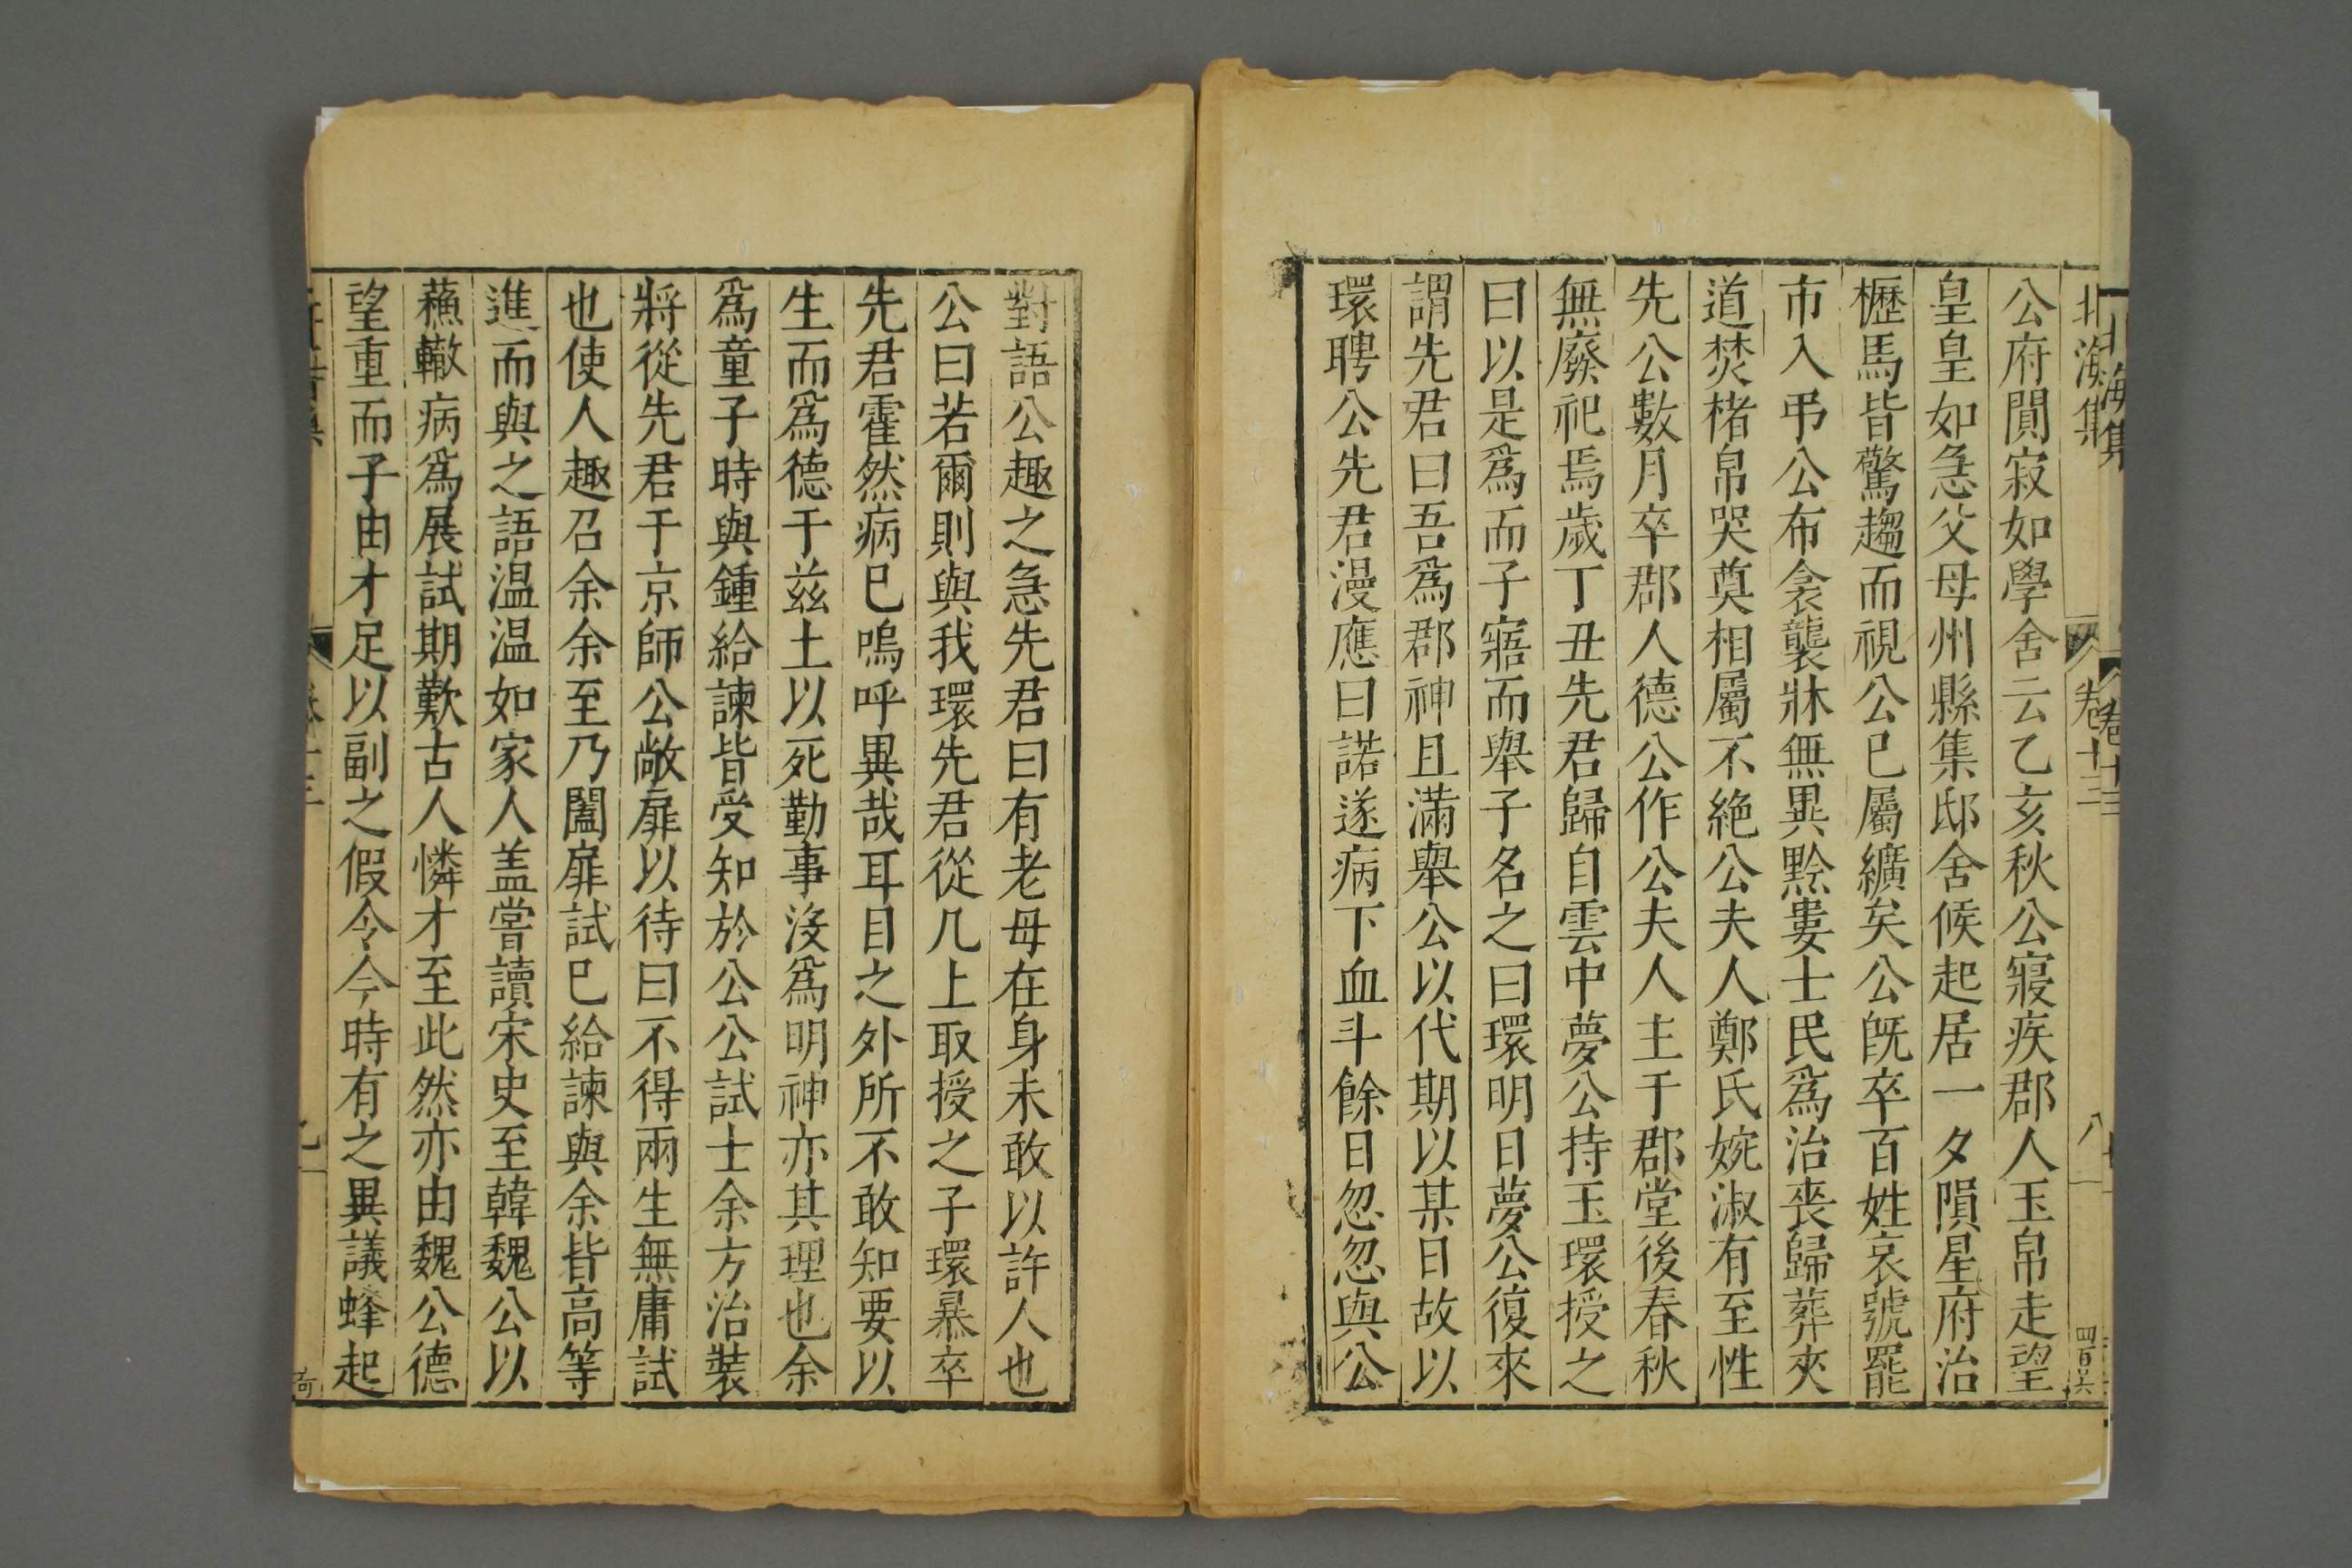 北海集 卷十三 八 四百六
公府閴寂如學舍云乙亥秋公寢疾郡人玉帛走望
皇皇如急父母州縣集邸舍候起居一夕隕星府治
櫪馬皆驚趨而視公已屬纊矣公旣卒百姓哀號罷
市入弔公布衾襲牀無異黔婁士民爲治喪歸葬夾
道焚楮帛哭奠相屬不絶公夫人鄭氏婉淑有至性
先公數月卒郡人德公作公夫人主于郡堂後春秋
無廢祀焉歲丁丑先君歸自雲中夢公持玉環授之
曰以是爲而子寤而舉子名之曰環明日夢公復來
謂先君曰吾爲郡神且滿舉公以代期以某日故以
環聘公先君漫應曰諾遂病下血斗餘日忽忽與公
對語公趣之急先君曰有老母在身未敢以許人也
公曰若爾則與我環先君從几上取授之子環暴卒
先君霍然病已嗚呼異哉耳目之外所不敢知要以
生而爲德于兹土以死勤事沒爲明神亦其理也余
爲童子時與鍾給諫皆受知於公公試士余方治裝
將從先君于京師公敞扉以待曰不得兩生無庸試
也使人趣召余余至乃闔扉試已給諫與余皆高等
進而與之語温温如家人盖嘗讀宋史至韓魏公以
蘓轍病爲展試期歎古人憐才至此然亦由魏公德
望重而子由才足以副之假令今時有之異議蜂起